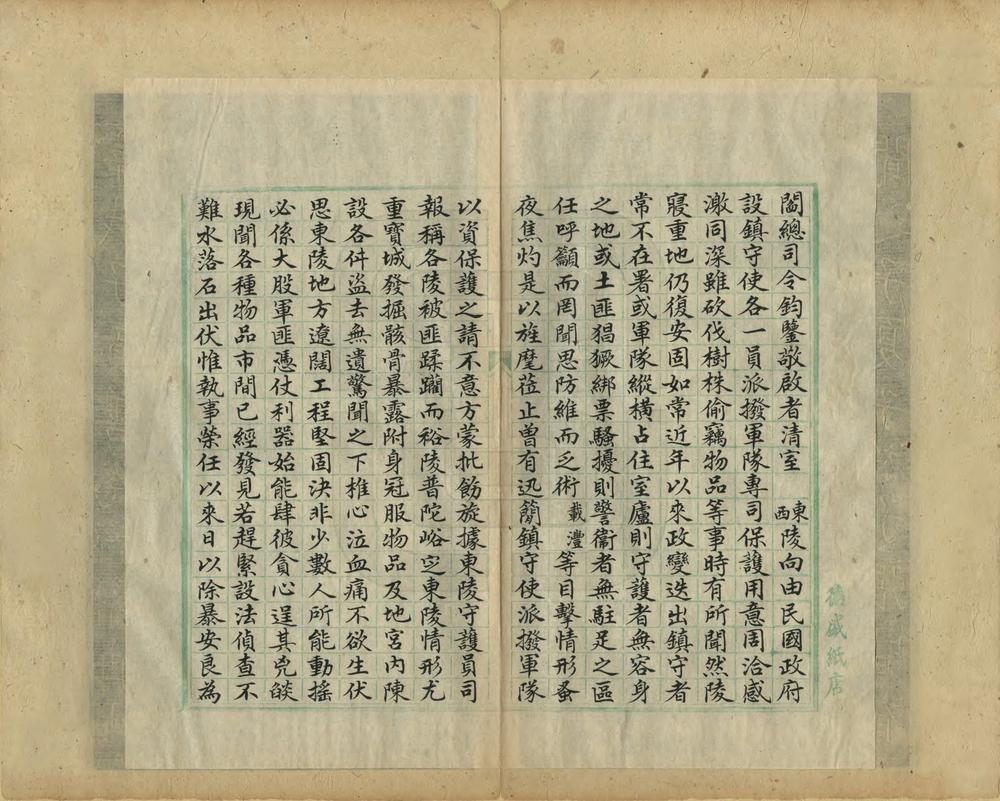 閻總司令鈞鑒敬啟者清室東西陵向由民國政府
設鎮守使各一員派撥軍隊專司保護用意周洽感
激同深雖砍伐樹株偷竊物品等事時有所聞然陵
寢重地仍復安固如常近年以來政變迭出鎮守者
常不在署或軍隊縱橫占住室廬則守護者無容身
之地或土匪猖獗綁票騷擾則警衞者無駐足之區
任呼籲而罔聞思防維而乏術載灃等目擊情形蚤
夜焦灼是以旌麾蒞止曾有迅簡鎮守使派撥軍隊
以資保護之請不意方蒙批飭旋據東陵守護員司
報稱各陵被匪蹂躪而裕陵普陀峪定東陵情形尤
重寶城發掘骸骨暴露附身冠服物品及地宮內陳
設各件盜去無遺驚聞之下椎心泣血痛不欲生伏
思東陵地方遼闊工程堅固決非少數人所能動搖
必係大股軍匪憑仗利器始能肆彼貪心逞其兇燄
現聞各種物品市間已經發見若趕緊設法偵查不
難水落石出伏惟執事榮任以來日以除暴安良為
德盛紙店